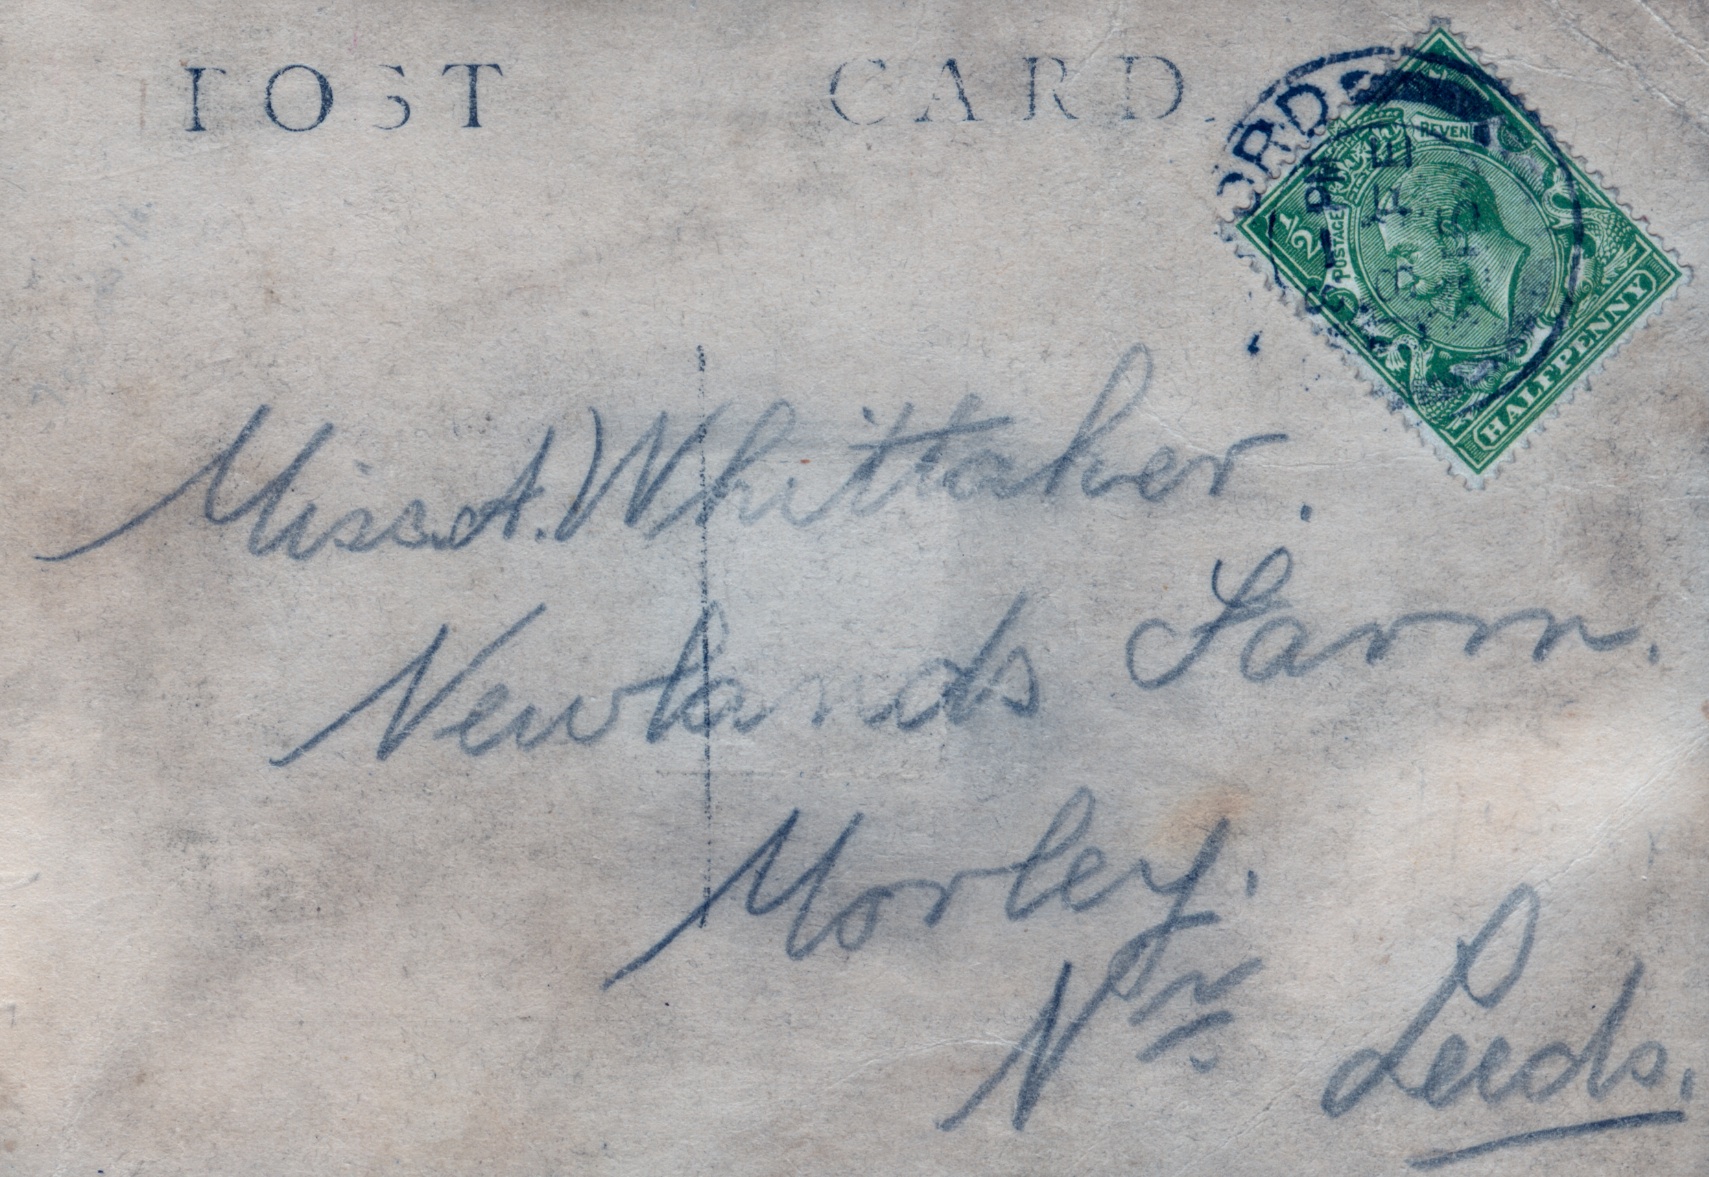 POST CARD.
ORDS
PM
REVENUE
½
POSTAGE
HALFPENNY
Miss A. Whittaker.
Newlands Farm.
Morley.
Nr Leeds.